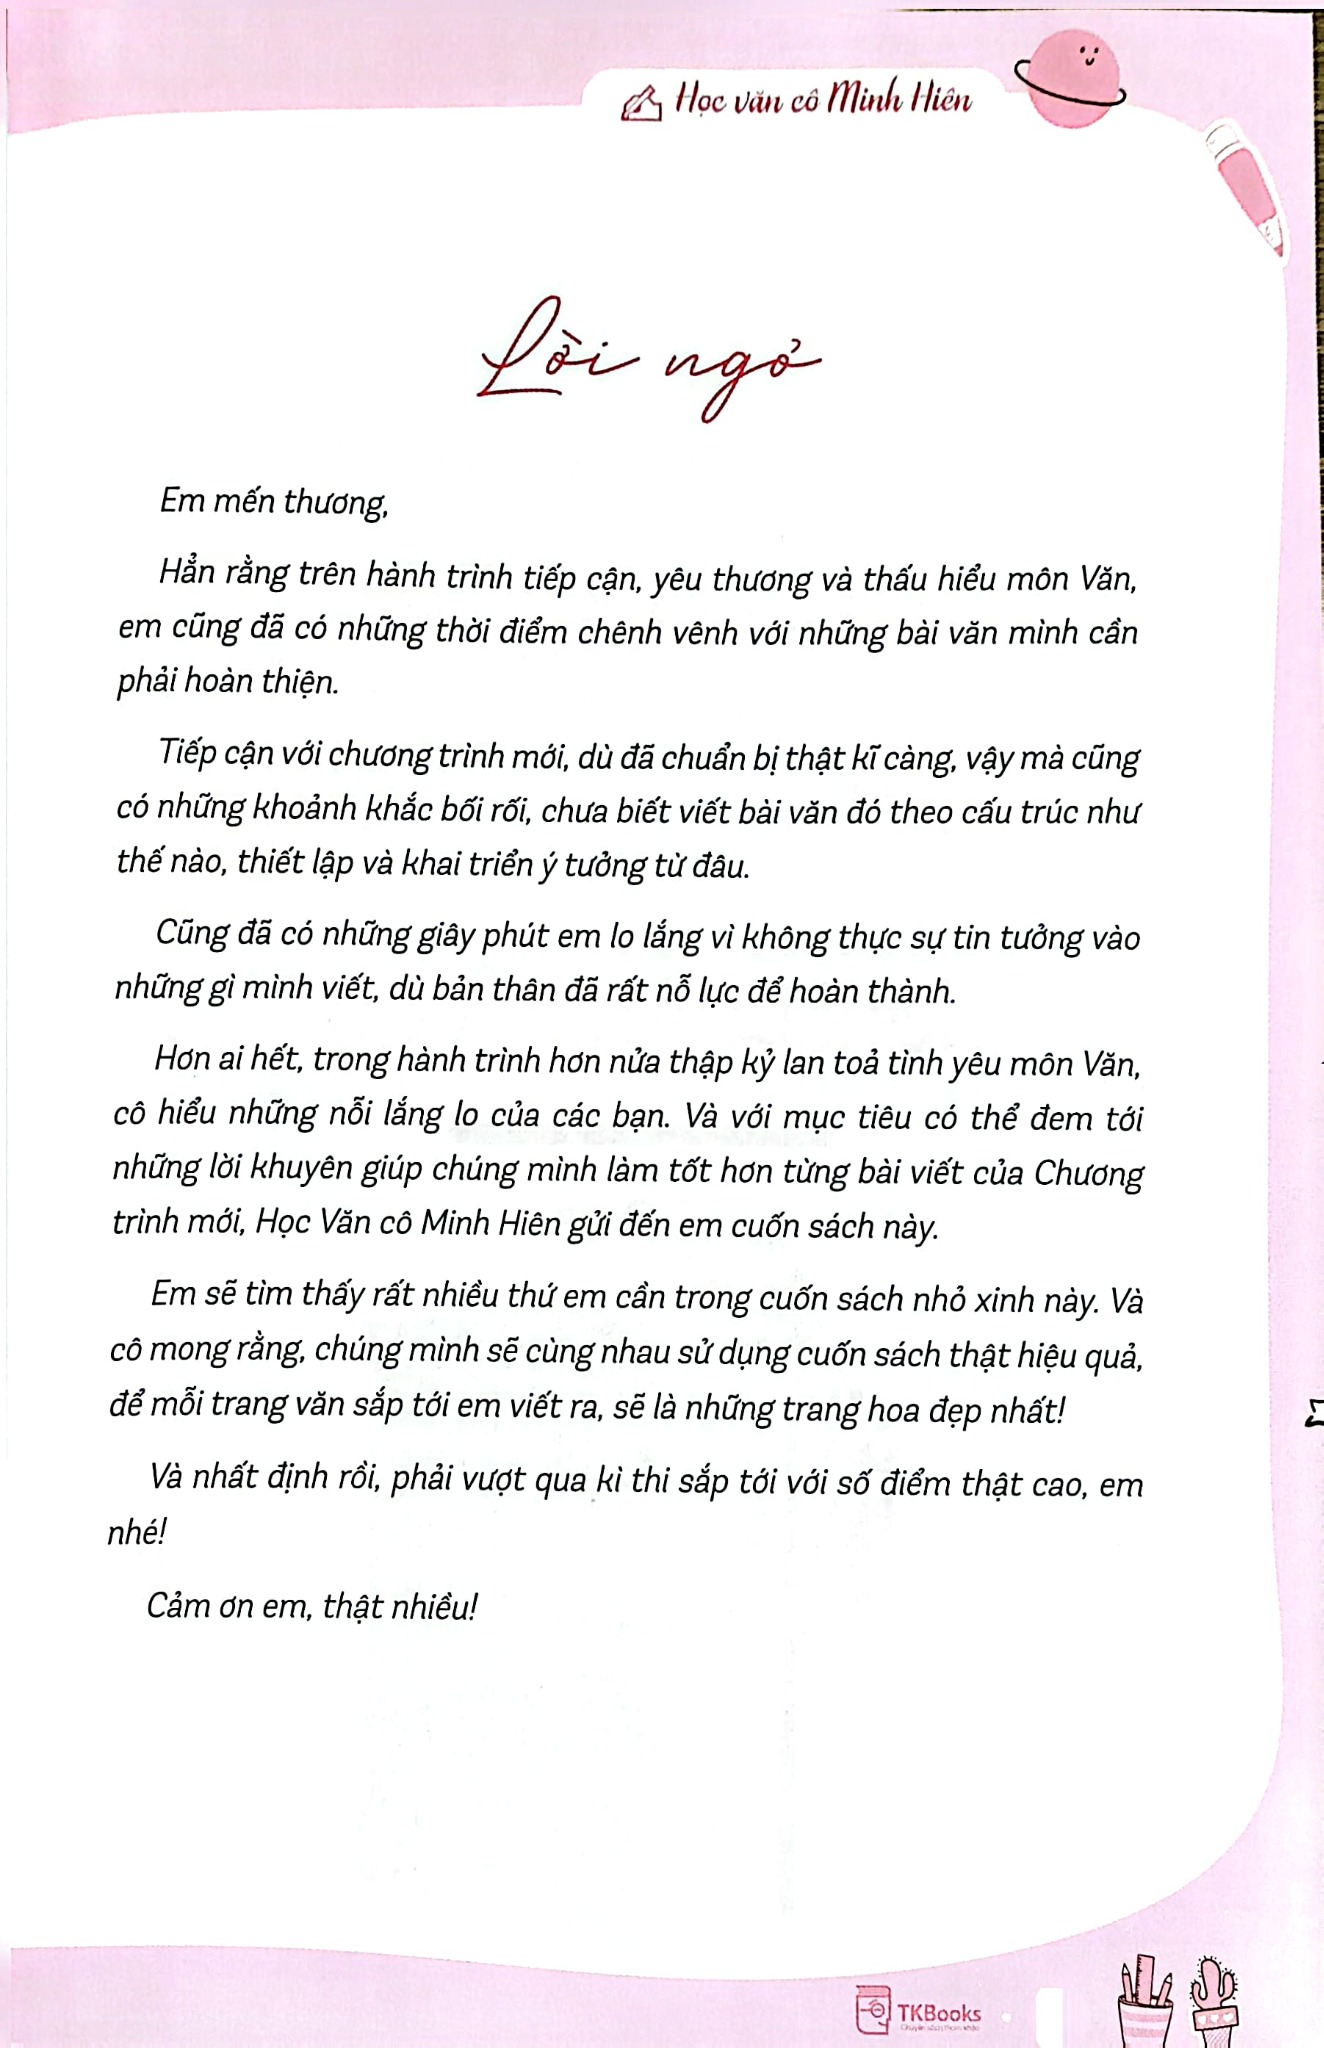 Học văn cô Minh Hiên
Lời ngỏ
Em mến thương,
Hẳn rằng trên hành trình tiếp cận, yêu thương và thấu hiểu môn Văn,
em cũng đã có những thời điểm chênh vênh với những bài văn mình cần
phải hoàn thiện.
Tiếp cận với chương trình mới, dù đã chuẩn bị thật kĩ càng, vậy mà cũng
có những khoảnh khắc bối rối, chưa biết viết bài văn đó theo cấu trúc như
thế nào, thiết lập và khai triển ý tưởng từ đâu.
Cũng đã có những giây phút em lo lắng vì không thực sự tin tưởng vào
những gì mình viết, dù bản thân đã rất nỗ lực để hoàn thành.
Hơn ai hết, trong hành trình hơn nửa thập kỷ lan toả tình yêu môn Văn,
cô hiểu những nỗi lắng lo của các bạn. Và với mục tiêu có thể đem tới
những lời khuyên giúp chúng mình làm tốt hơn từng bài viết của Chương
trình mới, Học Văn cô Minh Hiên gửi đến em cuốn sách này.
Em sẽ tìm thấy rất nhiều thứ em cần trong cuốn sách nhỏ xinh này. Và
cô mong rằng, chúng mình sẽ cùng nhau sử dụng cuốn sách thật hiệu quả,
để mỗi trang văn sắp tới em viết ra, sẽ là những trang hoa đẹp nhất!
Và nhất định rồi, phải vượt qua kì thi sắp tới với số điểm thật cao, em
nhé!
Cảm ơn em, thật nhiều!
TKBooks